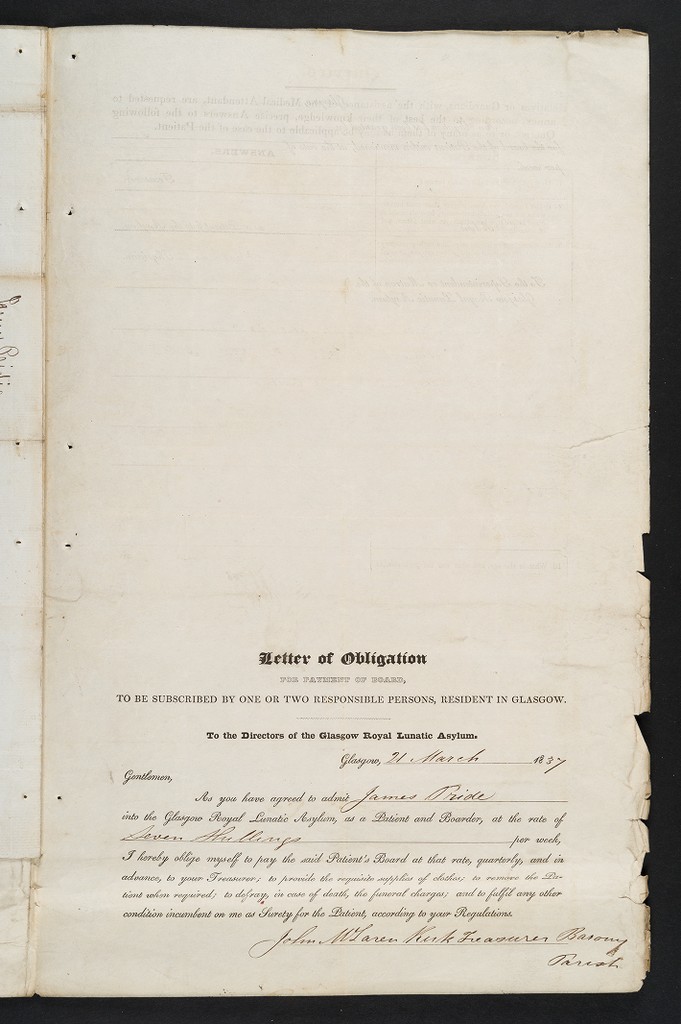 Letter of Obligation
FOR PAYMENT OF BOARD,
TO BE SUBSCRIBED BY ONE OR TWO RESPONSIBLE PERSONS, RESIDENT IN GLASGOW.
To the Directors of the Glasgow Royal Lunatic Asylum.
Glasgow, 21 March 1837
Gentlemen,
As you have agreed to admit James Pride
into the Glasgow Royal Lunatic Asylum, as a Patient and Boarder, at the rate of
Seven Shillings per week,
I hereby oblige myself to pay the said Patient's Board at that rate, quarterly, and in
advance, to your Treasurer; to provide the requisite supplies of clothes; to remove the Pa-
tient when required; to defray, in case of death, the funeral charges; and to fulfil any other
condition incumbent on me as Surety for the Patient, according to your Regulations.
John McLaren Kirk Treasurer Barony
Parish